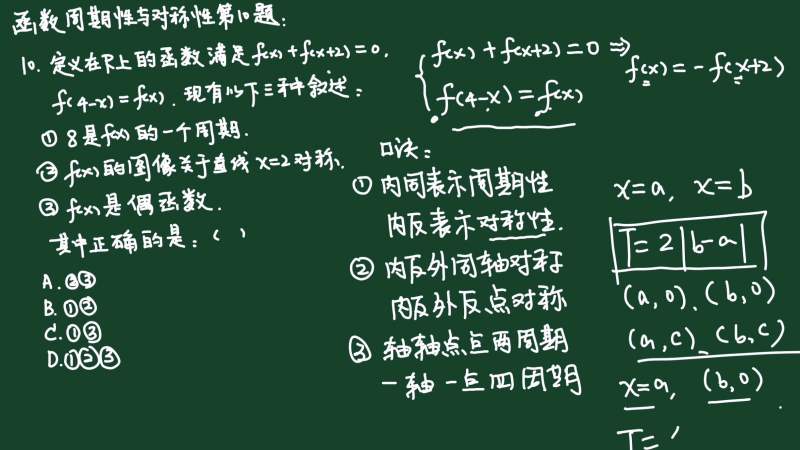 函数周期性与对称性第10题:
10. 定义在R上的函数满足f(x)+f(x+2)=0,
f(4-x)=f(x). 现有以下三种叙述:
① 8是f(x)的一个周期.
② f(x)的图像关于直线x=2对称.
③ f(x)是偶函数.
其中正确的是:( )
A.②③
B.①②
C.①③
D.①②③
f(x)+f(x+2)=0 ⇒
f(x)=-f(x+2)
f(4-x)=f(x)
口诀:
① 内同表示周期性
内反表示对称性.
② 内反外同轴对称
内反外反点对称
③ 轴轴点点两周期
一轴一点四周期
x=a, x=b
T=2|b-a|
(a,0)、(b,0)
(a,c)、(b,c)
x=a, (b,0)
T=